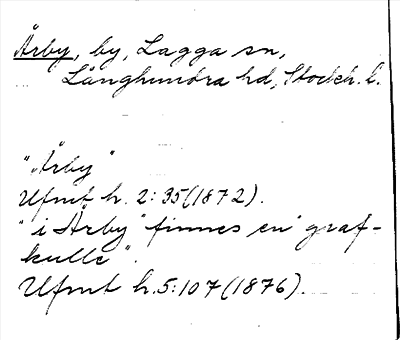 Årby, by, Lagga sn,
Långhundra hd, Stockh. l.
"Årby"
Ufmt h. 2:35 (1872).
"i Årby" finnes en "graf-
kulle".
Ufmt h. 5:107 (1876).